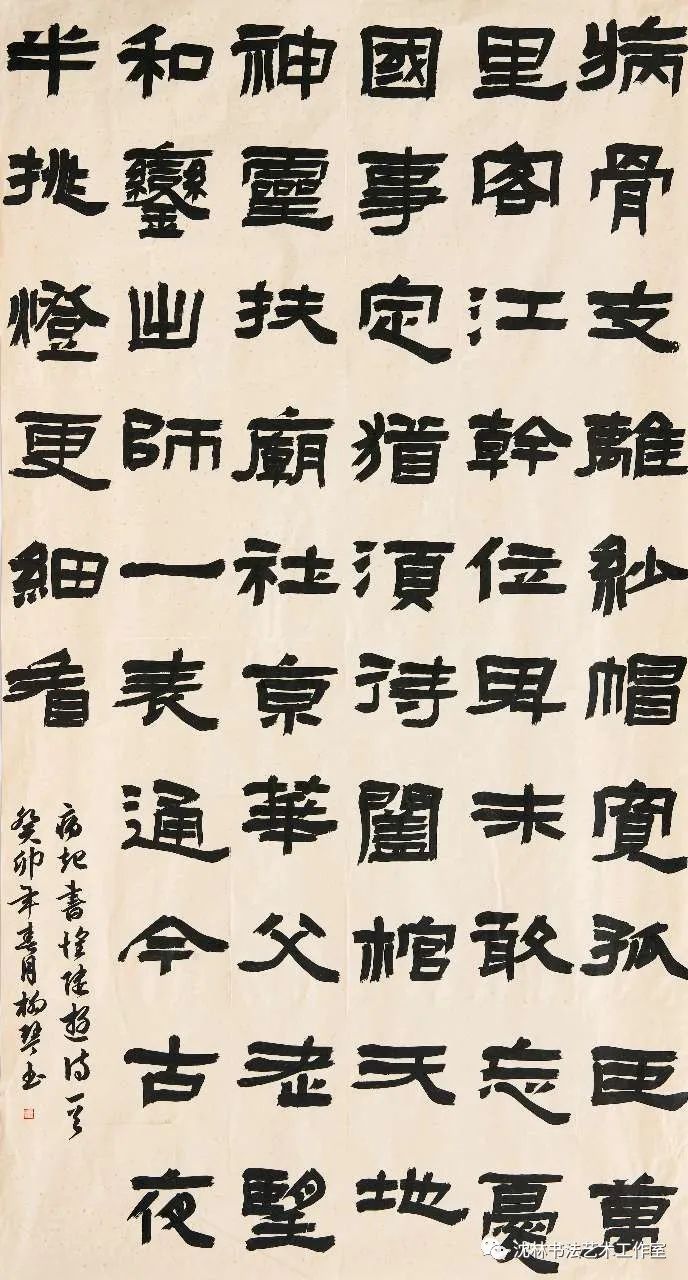 病骨支離紗帽寬孤臣萬
里客江幹位卑未敢忘憂
國事定猶須待闔棺天地
神靈扶廟社京華父老望
和鑾出師一表通今古夜
半挑燈更細看
病起書懷陸遊詩一首
癸卯年春月楊琴书
沈林书法艺术工作室